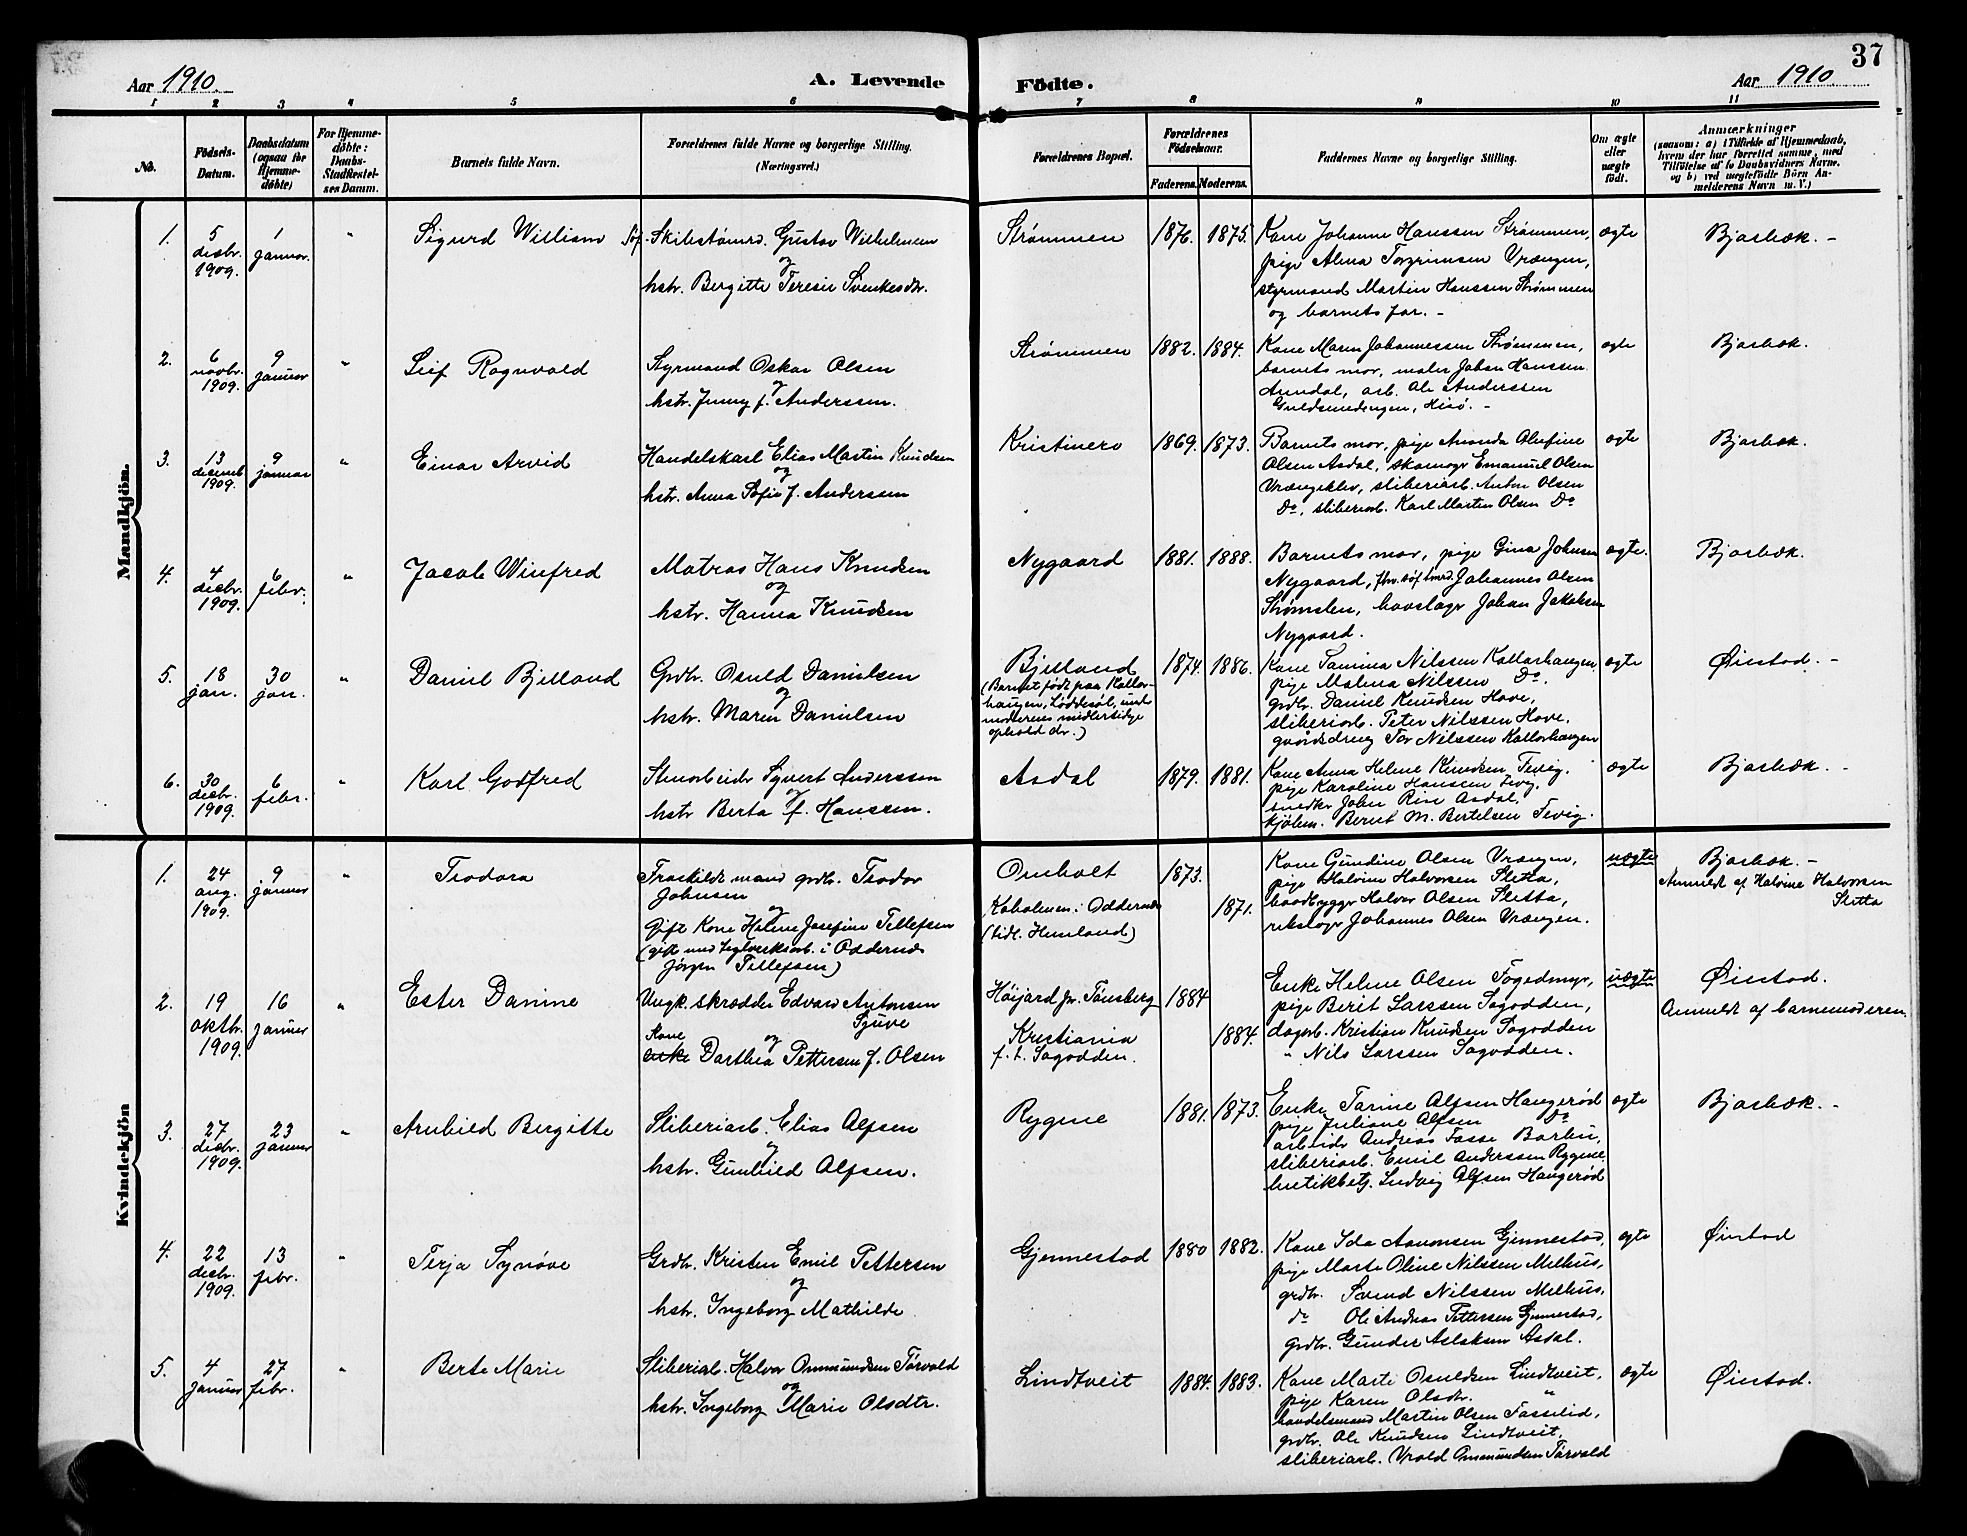 37
Aar 1910.
A. Levende
Födte.
Aar 1910
1 2 3 4 5 6 7 8 9 10 11
No.
Födsels-
Datum.
Daabsdatum
(ogsaa for
Hjemme-
döbte)
For Hjemme-
döbte:
Daabs-
Stadfæstel-
ses Datum.
Barnets fulde Navn.
Forældrenes fulde Navne og borgerlige Stilling.
(Næringsvei.)
Forældrenes Bopæl.
Forældrenes
Födselsaar.
Faderens. Moderens.
Faddernes Navne og borgerlige Stilling.
Om ægte
eller
uægte
født.
Anmærkninger
(saasom: a) i Tilfælde af Hjemmedaab,
hvem der har forrettet samme, med
Tilföielse af to Daabsvidners Navne,
og b) ved uægtefödte Börn An-
melderens Navn m. V.)
Mandkjön.
1.
5
decbr.
1909.
1
januar.
"
Sigurd William
Søf. Skibstømrd. Gustav Wilhelmsen
og
hstr. Bergitte Teresie Svenkesdtr.
Strømmen
1876.
1875.
Kone Johanne Hanssen Strømmen,
pige Alma Torgrimsen Vrængen,
styrmand Martin Hanssen Strømmen
og barnets far. -
ægte
Bjorbæk. -
2.
6
novbr.
1909.
9
januar
"
Leif Ragnvald
Styrmand Oskar Olsen
og
hstr. Jenny f. Anderssen.
Strømmen
1882.
1884.
Kone Maren Johannessen Strømmen,
barnets mor, maler Johan Hanssen
Arendal, arb. Ole Anderssen
Guldsmedengen, Hisø. -
ægte
Bjorbæk.
3.
13
decemb
1909.
9
januar
"
Einar Arvid
Handelskarl Elias Martin Knudsen
og
hstr. Anna Sofie f. Anderssen
Kristinero
1869.
1873.
Barnets mor, pige Amanda Olufine
Olsen Asdal, skomagr Emanuel Olsen
Vrængeklev, sliberiarb. Anton Olsen
Do, sliberiarb. Karl Martin Olsen Do
ægte
Bjorbæk.
4.
4
decbr.
1909.
6
febr.
"
Jacob Winfred
Matros Hans Knudsen
og
hstr. Hanna Knudsen
Nygaard
1881.
1888.
Barnets mor, pige Gina Johnsen
Nygaard, fhv. søf tmrd. Johannes Olsen
Strømslen, havslagr Johan Jakobsen
Nygaard.
ægte.
Bjorbæk.
5.
18
jan.
30
jan.
"
Daniel Bjelland
Grdbr. Osuld Danielsen
og
hstr. Maren Danielsen
Bjelland
(Barnet født paa Kaller-
haugen, Løddesøl, under
moderens midlertidige
ophold dr.)
1874.
1886.
Kone Tamina Nilssen Kallerhaugen
pige Malina Nilssen Do.
grdbr. Daniel Knudsen Hove,
sliberiarb. Peter Nilssen Hove,
gaardsdreng Tor Nilssen Kallerhaugen
ægte
Øiestad. -
6.
30
decbr.
1909.
6
febr.
"
Karl Godfred
Stenarbeider Syvert Anderssen
og
hstr Berta f. Hanssen.
Asdal
1879.
1881.
Kone Anna Helene Knudsen Fevig.
pige Karoline Hanssen Fevig,
snedkr John Rise Asdal,
skjölem. Bernt M. Bertelsen Fevig.
ægte
Bjorbæk. -
Kvindekjön
1.
24
aug.
1909.
9
januar
"
Teodora
Fraskildt mand grdbr. Teodor
Johnsen
og
Gift Kone Helene Josefine Tellefsen
(gift med teglverksarb. i Oddernes
Jørgen Tellefsen)
Omholt
Kaholmen i Oddernes
(tidl. Hemland)
1873.
1871.
Kone Gundine Olsen Vrængen,
pige Halvine Halvorsen Sletta,
baadbyggr Halvor Olsen Sletta,
rebslagr Johannes Olsen Vrængen.
uægte
Bjorbæk. -
Anmeldt af Halvine Halvorsen
Sletta
2.
19
oktbr.
1909.
16
januar
"
Ester Danine
Ungk. skrædder Edvard Antonsen
Sjuve
og
Kone
enke Darthea Pettersen f. Olsen
Høijord pr. Tønsberg
Kristiania
f. t. Sagodden.
1884
1884.
Enke Helene Olsen Fogedmyr,
pige Berit Larssen Sagodden,
dagarb. Kristian Knudsen Sagodden
" Nils Larssen Sagodden.
uægte
Øiestad.
Anmeldt af barnemoderen
3.
27
decbr.
1909.
23
januar
"
Arnhild Bergitte
Sliberiarb. Elias Alfsen
og
hstr. Gunhild Alfsen.
Rygene
1881.
1873.
Enke Tarine Alfsen Haugerød
pige Juliane Alfsen Do
arbeider Andreas Fosse Barbu,
sliberiarb. Emil Anderssen Rygene
butikbetj. Ludvig Alfsen Haugerød
ægte
Bjorbæk. -
4.
22
decbr.
1909.
13
febr.
"
Terja Synøve
Grdbr. Kristen Emil Pettersen
og
hstr. Ingeborg Mathilde
Gjennestad
1880
1882.
Kone Ida Aanonsen Gjennestad,
pige Marte Oline Nilssen Melhus,
grdbr. Svend Nilssen Melhus,
do Ole Andreas Pettersen Gjennestad,
grdbr. Gunder Aslaksen Asdal.
ægte
Øiestad
5.
4
januar
27
febr.
"
Berte Marie
Sliberiarb. Halvor Ommundsen Torvald
og
hstr. Ingeborg Marie Olsdtr.
Lindtveit
1884.
1883.
Kone Marte Osuldsen Lindtveit,
pige Karen Olsdtr. "
handelsmand Martin Olsen Fosselid,
grdbr. Ole Knudsen Lindtveit,
sliberiarb. Vrold Ommundsen Torvald
ægte
Øiestad.